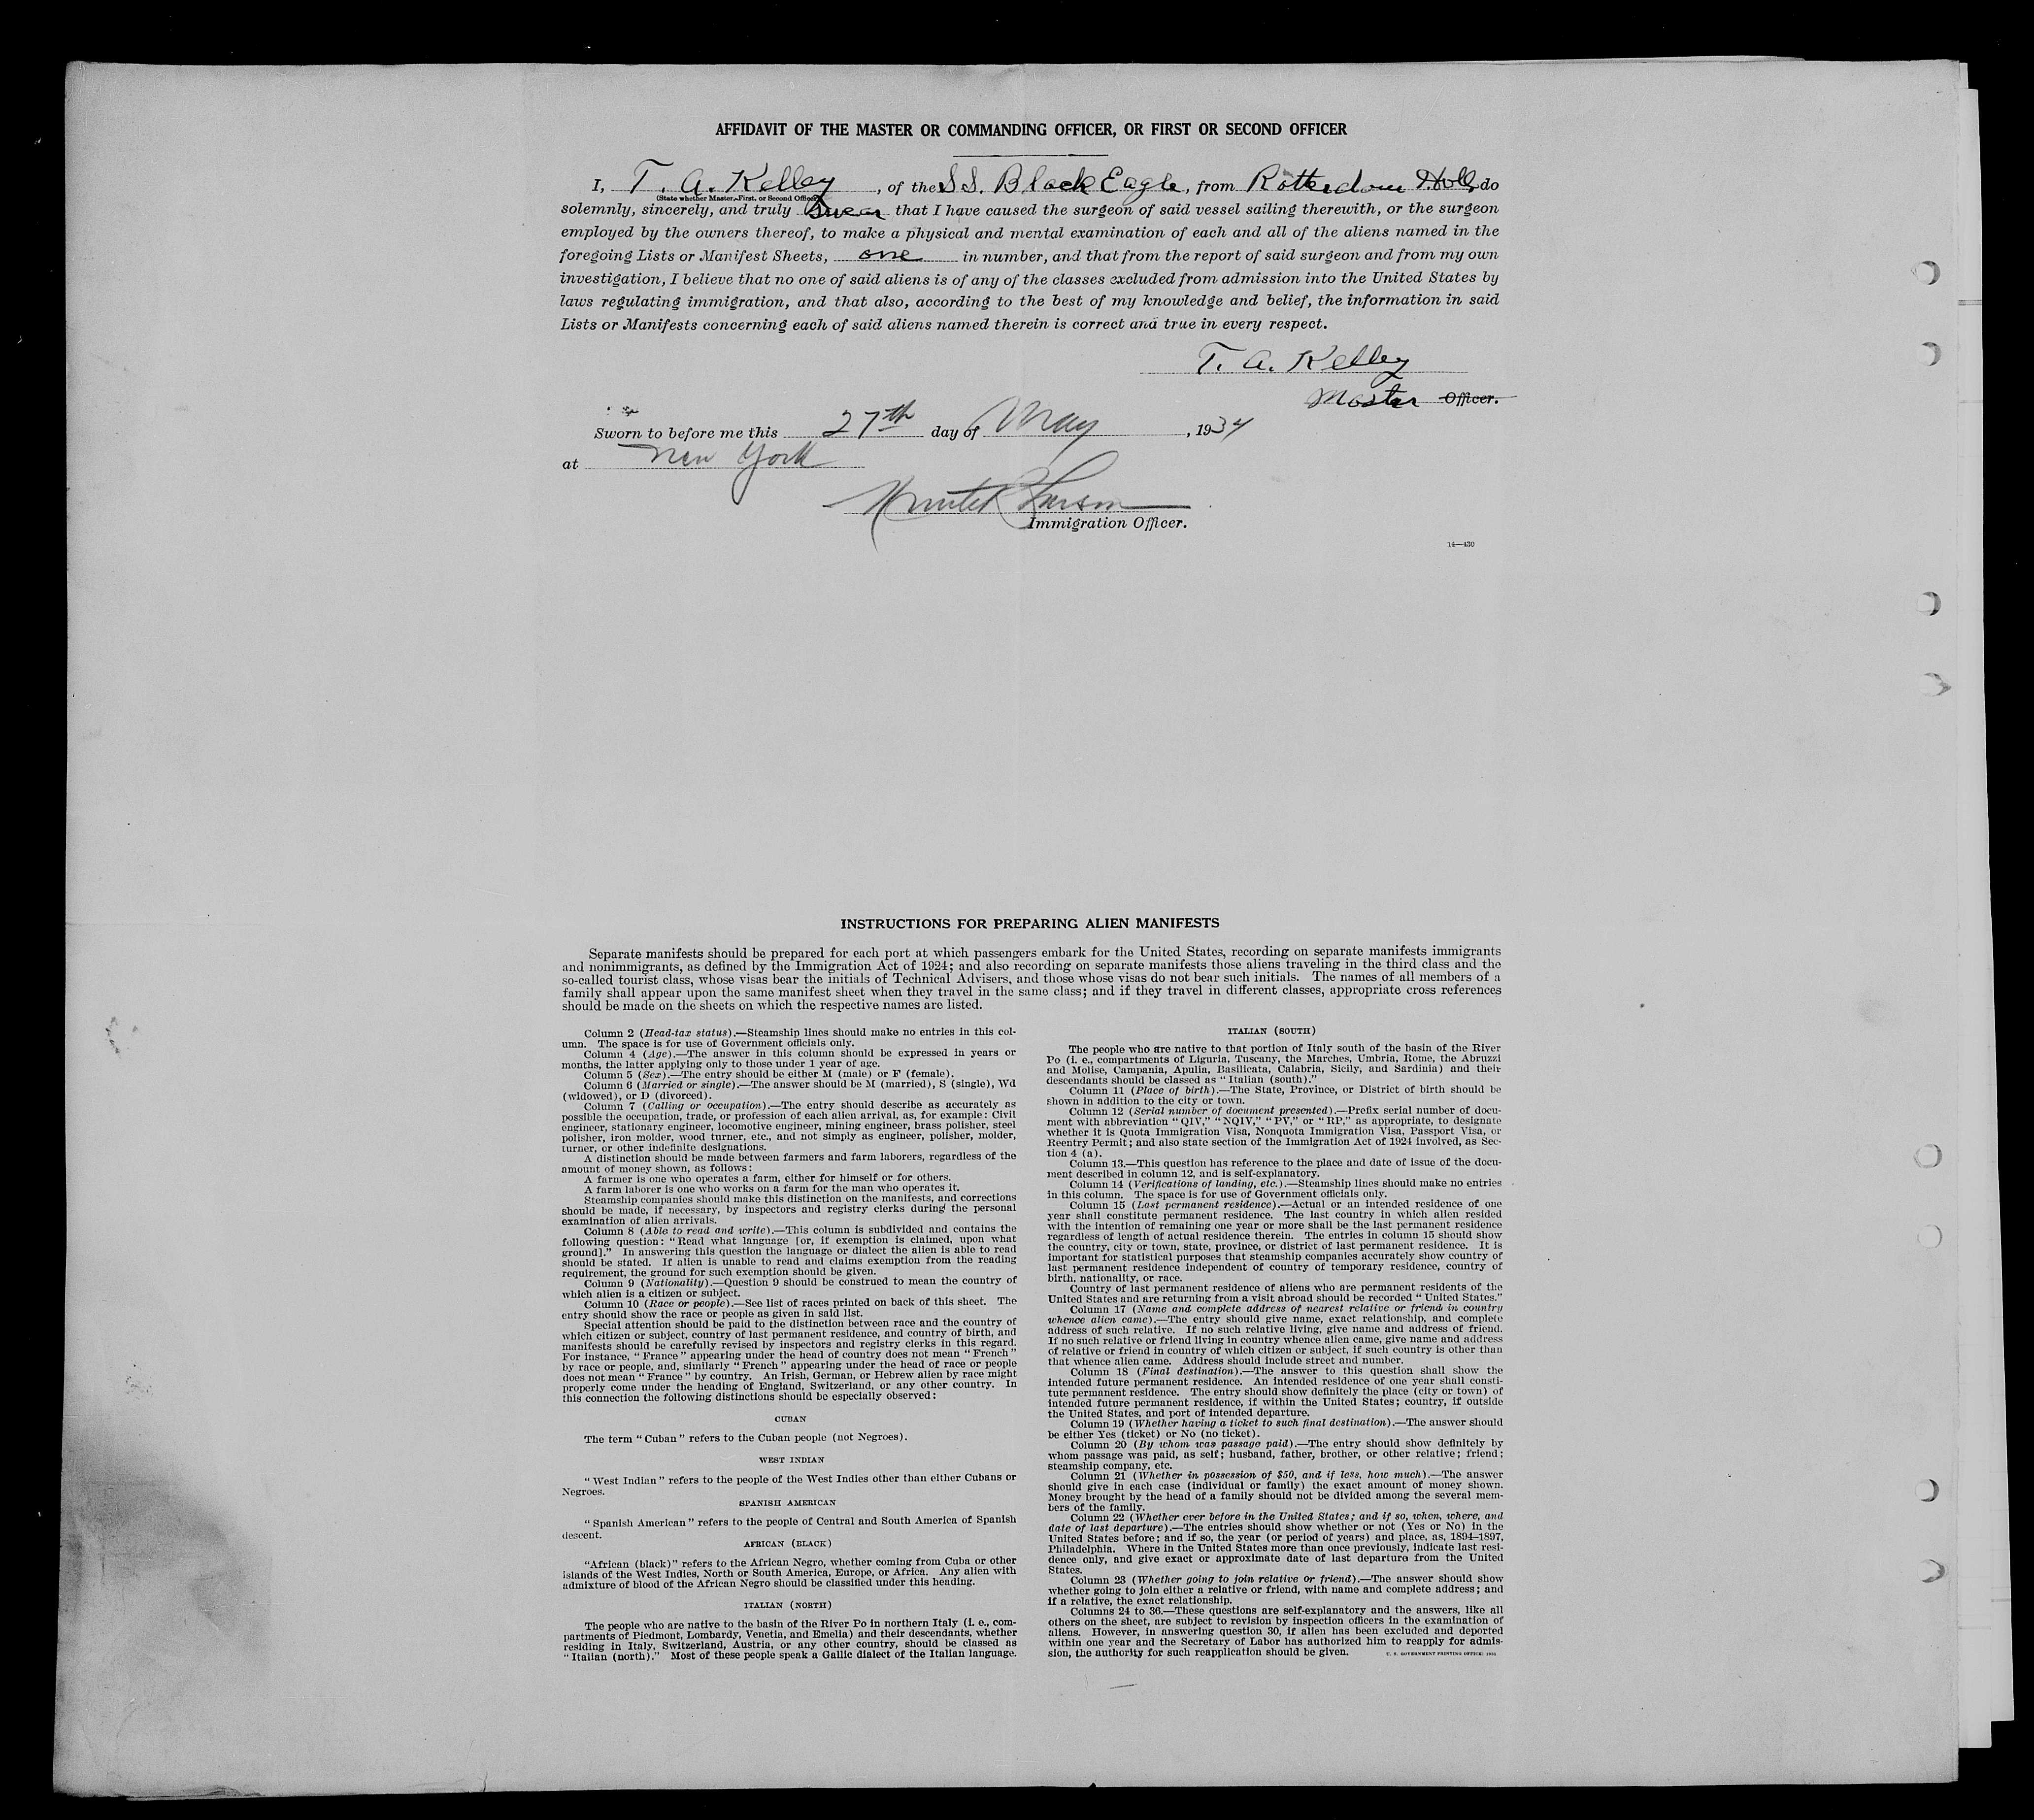 AFFIDAVIT OF THE MASTER OR COMMANDING OFFICER, OR FIRST OR SECOND OFFICER
I, T. A. Kelley, of the S.S. Black Eagle, from Rotterdam Holl, do
(State whether Master, First, or Second Officer)
solemnly, sincerely, and truly Swear that I have caused the surgeon of said vessel sailing therewith, or the surgeon
employed by the owners thereof, to make a physical and mental examination of each and all of the aliens named in the
foregoing Lists or Manifest Sheets, one in number, and that from the report of said surgeon and from my own
investigation, I believe that no one of said aliens is of any of the classes excluded from admission into the United States by
laws regulating immigration, and that also, according to the best of my knowledge and belief, the information in said
Lists or Manifests concerning each of said aliens named therein is correct and true in every respect.
T. A. Kelley
Master Officer.
Sworn to before me this 27th day of May, 1934
at New York
Immigration Officer.
14—430
INSTRUCTIONS FOR PREPARING ALIEN MANIFESTS
Separate manifests should be prepared for each port at which passengers embark for the United States, recording on separate manifests immigrants
and nonimmigrants, as defined by the Immigration Act of 1924; and also recording on separate manifests those aliens traveling in the third class and the
so-called tourist class, whose visas bear the initials of Technical Advisers, and those whose visas do not bear such initials. The names of all members of a
family shall appear upon the same manifest sheet when they travel in the same class; and if they travel in different classes, appropriate cross references
should be made on the sheets on which the respective names are listed.
Column 2 (Head-tax status).—Steamship lines should make no entries in this col-
umn. The space is for use of Government officials only.
Column 4 (Age).—The answer in this column should be expressed in years or
months, the latter applying only to those under 1 year of age.
Column 5 (Sex).—The entry should be either M (male) or F (female).
Column 6 (Married or single).—The answer should be M (married), S (single), Wd
(widowed), or D (divorced).
Column 7 (Calling or occupation).—The entry should describe as accurately as
possible the occupation, trade, or profession of each alien arrival, as, for example: Civil
engineer, stationary engineer, locomotive engineer, mining engineer, brass polisher, steel
polisher, iron molder, wood turner, etc., and not simply as engineer, polisher, molder,
turner, or other indefinite designations.
A distinction should be made between farmers and farm laborers, regardless of the
amount of money shown, as follows:
A farmer is one who operates a farm, either for himself or for others.
A farm laborer is one who works on a farm for the man who operates it.
Steamship companies should make this distinction on the manifests, and corrections
should be made, if necessary, by inspectors and registry clerks during the personal
examination of alien arrivals.
Column 8 (Able to read and write).—This column is subdivided and contains the
following question: "Read what language [or, if exemption is claimed, upon what
ground]." In answering this question the language or dialect the alien is able to read
should be stated. If alien is unable to read and claims exemption from the reading
requirement, the ground for such exemption should be given.
Column 9 (Nationality).—Question 9 should be construed to mean the country of
which alien is a citizen or subject.
Column 10 (Race or people).—See list of races printed on back of this sheet. The
entry should show the race or people as given in said list.
Special attention should be paid to the distinction between race and the country of
which citizen or subject, country of last permanent residence, and country of birth, and
manifests should be carefully revised by inspectors and registry clerks in this regard.
For instance, "France" appearing under the head of country does not mean "French"
by race or people, and, similarly "French" appearing under the head of race or people
does not mean "France" by country. An Irish, German, or Hebrew alien by race might
properly come under the heading of England, Switzerland, or any other country. In
this connection the following distinctions should be especially observed:
CUBAN
The term "Cuban" refers to the Cuban people (not Negroes).
WEST INDIAN
"West Indian" refers to the people of the West Indies other than either Cubans or
Negroes.
SPANISH AMERICAN
"Spanish American" refers to the people of Central and South America of Spanish
descent.
AFRICAN (BLACK)
"African (black)" refers to the African Negro, whether coming from Cuba or other
islands of the West Indies, North or South America, Europe, or Africa. Any alien with
admixture of blood of the African Negro should be classified under this heading.
ITALIAN (NORTH)
The people who are native to the basin of the River Po in northern Italy (i. e., com-
partments of Piedmont, Lombardy, Venetia, and Emelia) and their descendants, whether
residing in Italy, Switzerland, Austria, or any other country, should be classed as
"Italian (north)." Most of these people speak a Gallic dialect of the Italian language.
ITALIAN (SOUTH)
The people who are native to that portion of Italy south of the basin of the River
Po (i. e., compartments of Liguria, Tuscany, the Marches, Umbria, Rome, the Abruzzi
and Molise, Campania, Apulia, Basilicata, Calabria, Sicily, and Sardinia) and their
descendants should be classed as "Italian (south)."
Column 11 (Place of birth).—The State, Province, or District of birth should be
shown in addition to the city or town.
Column 12 (Serial number of document presented).—Prefix serial number of docu-
ment with abbreviation "QIV," "NQIV," "PV," or "RP," as appropriate, to designate
whether it is Quota Immigration Visa, Nonquota Immigration Visa, Passport Visa, or
Reentry Permit; and also state section of the Immigration Act of 1924 involved, as Sec-
tion 4 (a).
Column 13.—This question has reference to the place and date of issue of the docu-
ment described in column 12, and is self-explanatory.
Column 14 (Verifications of landing, etc.).—Steamship lines should make no entries
in this column. The space is for use of Government officials only.
Column 15 (Last permanent residence).—Actual or an intended residence of one
year shall constitute permanent residence. The last country in which alien resided
with the intention of remaining one year or more shall be the last permanent residence
regardless of length of actual residence therein. The entries in column 15 should show
the country, city or town, state, province, or district of last permanent residence. It is
important for statistical purposes that steamship companies accurately show country of
last permanent residence independent of country of temporary residence, country of
birth, nationality, or race.
Country of last permanent residence of aliens who are permanent residents of the
United States and are returning from a visit abroad should be recorded "United States."
Column 17 (Name and complete address of nearest relative or friend in country
whence alien came).—The entry should give name, exact relationship, and complete
address of such relative. If no such relative living, give name and address of friend.
If no such relative or friend living in country whence alien came, give name and address
of relative or friend in country of which citizen or subject, if such country is other than
that whence alien came. Address should include street and number.
Column 18 (Final destination).—The answer to this question shall show the
intended future permanent residence. An intended residence of one year shall consti-
tute permanent residence. The entry should show definitely the place (city or town) of
intended future permanent residence, if within the United States; country, if outside
the United States, and port of intended departure.
Column 19 (Whether having a ticket to such final destination).—The answer should
be either Yes (ticket) or No (no ticket).
Column 20 (By whom was passage paid).—The entry should show definitely by
whom passage was paid, as self; husband, father, brother, or other relative; friend;
steamship company, etc.
Column 21 (Whether in possession of $50, and if less, how much).—The answer
should give in each case (individual or family) the exact amount of money shown.
Money brought by the head of a family should not be divided among the several mem-
bers of the family.
Column 22 (Whether ever before in the United States; and if so, when, where, and
date of last departure).—The entries should show whether or not (Yes or No) in the
United States before; and if so, the year (or period of years) and place, as, 1894–1897,
Philadelphia. Where in the United States more than once previously, indicate last resi-
dence only, and give exact or approximate date of last departure from the United
States.
Column 23 (Whether going to join relative or friend).—The answer should show
whether going to join either a relative or friend, with name and complete address; and
if a relative, the exact relationship.
Columns 24 to 36.—These questions are self-explanatory and the answers, like all
others on the sheet, are subject to revision by inspection officers in the examination of
aliens. However, in answering question 30, if alien has been excluded and deported
within one year and the Secretary of Labor has authorized him to reapply for admis-
sion, the authority for such reapplication should be given.
U. S. GOVERNMENT PRINTING OFFICE: